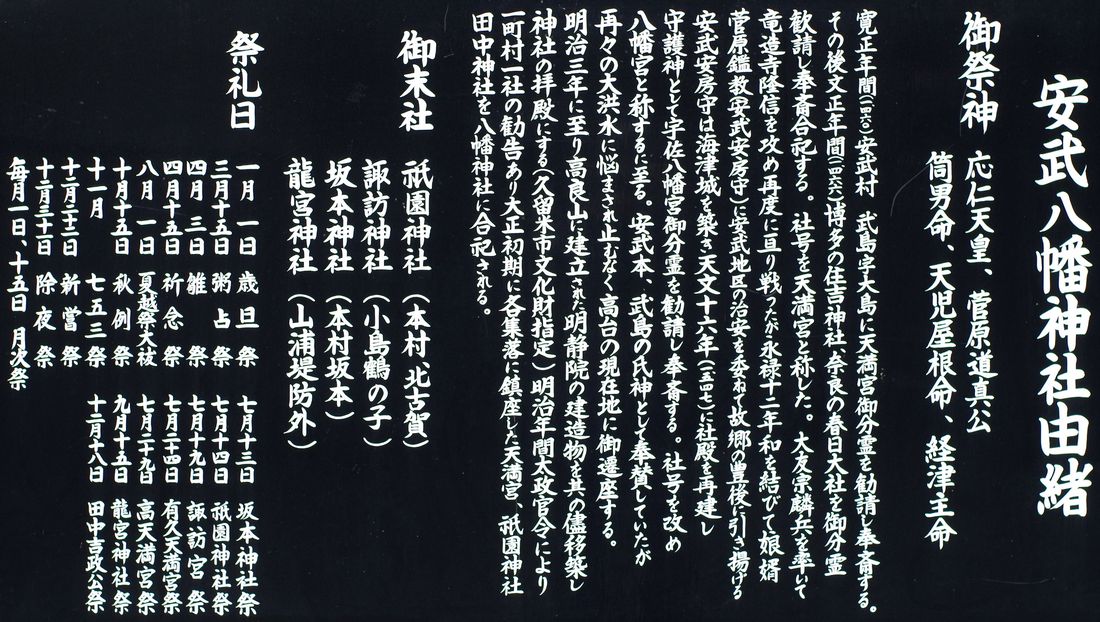 安武八幡神社由緒
御祭神
応仁天皇、菅原道真公
筒男命、天児屋根命、経津主命
寛正年間(一四六〇)安武村 武島字大島に天満宮御分霊を勧請し奉斎する。
その後文正年間(一四六六)博多の住吉神社、奈良の春日大社を御分霊
歓請し奉斎合祀する。社号を天満宮と称した。大友宗麟兵を率いて
竜造寺隆信を攻め再度に亘り戦ったが永禄十二年和を結びて娘婿
菅原鑑教(安武安房守)に安武地区の治安を委ねて故郷の豊後に引き揚げる
安武安房守は海津城を築き天文十六年(一五四七)に社殿を再建し
守護神として宇佐八幡宮御分霊を勧請し奉斎する。社号を改め
八幡宮と称するに至る。安武本、武島の氏神として奉賛していたが
再々の大洪水に悩まされ止むなく高台の現在地に御遷座する。
明治三年に至り高良山に建立された明静院の建造物を其の儘移築し
神社の拝殿にする(久留米市文化財指定)明治年間太政官令により
一町村一社の勧告あり大正初期に各集落に鎮座した天満宮、祇園神社
田中神社を八幡神社に合祀される。
御末社
祇園神社(本村、北古賀)
諏訪神社(小島鶴の子)
坂本神社(本村坂本)
龍宮神社(山浦堤防外)
祭礼日
一月一日 歳旦祭
三月十五日 粥占祭
四月三日 雛祭
四月十五日 祈念祭
八月一日 夏越祭大祓
十月十五日 秋例祭
十一月 七五三祭
十二月二十二日 新嘗祭
十二月三十日 除夜祭
毎月一日、十五日 月次祭
七月十三日 坂本神社祭
七月十四日 祇園神社祭
七月十九日 諏訪宮祭
七月二十四日 有久天満宮祭
七月二十九日 高天満宮祭
九月十五日 龍宮神社祭
十二月十八日 田中吉政公祭